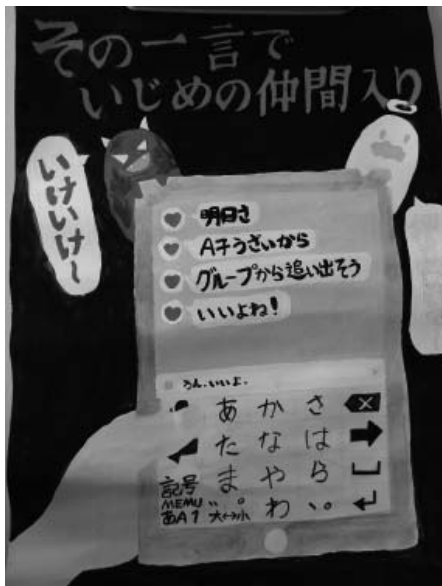 その一言で
いじめの仲間入り
いけいけ～
明日さ
A子うざいから
グループから追い出そう
いいよね!
うん、いいよ。
あ か さ
た な は
ま や ら
記号
MEMU
あA1 大↔小 わ 、。